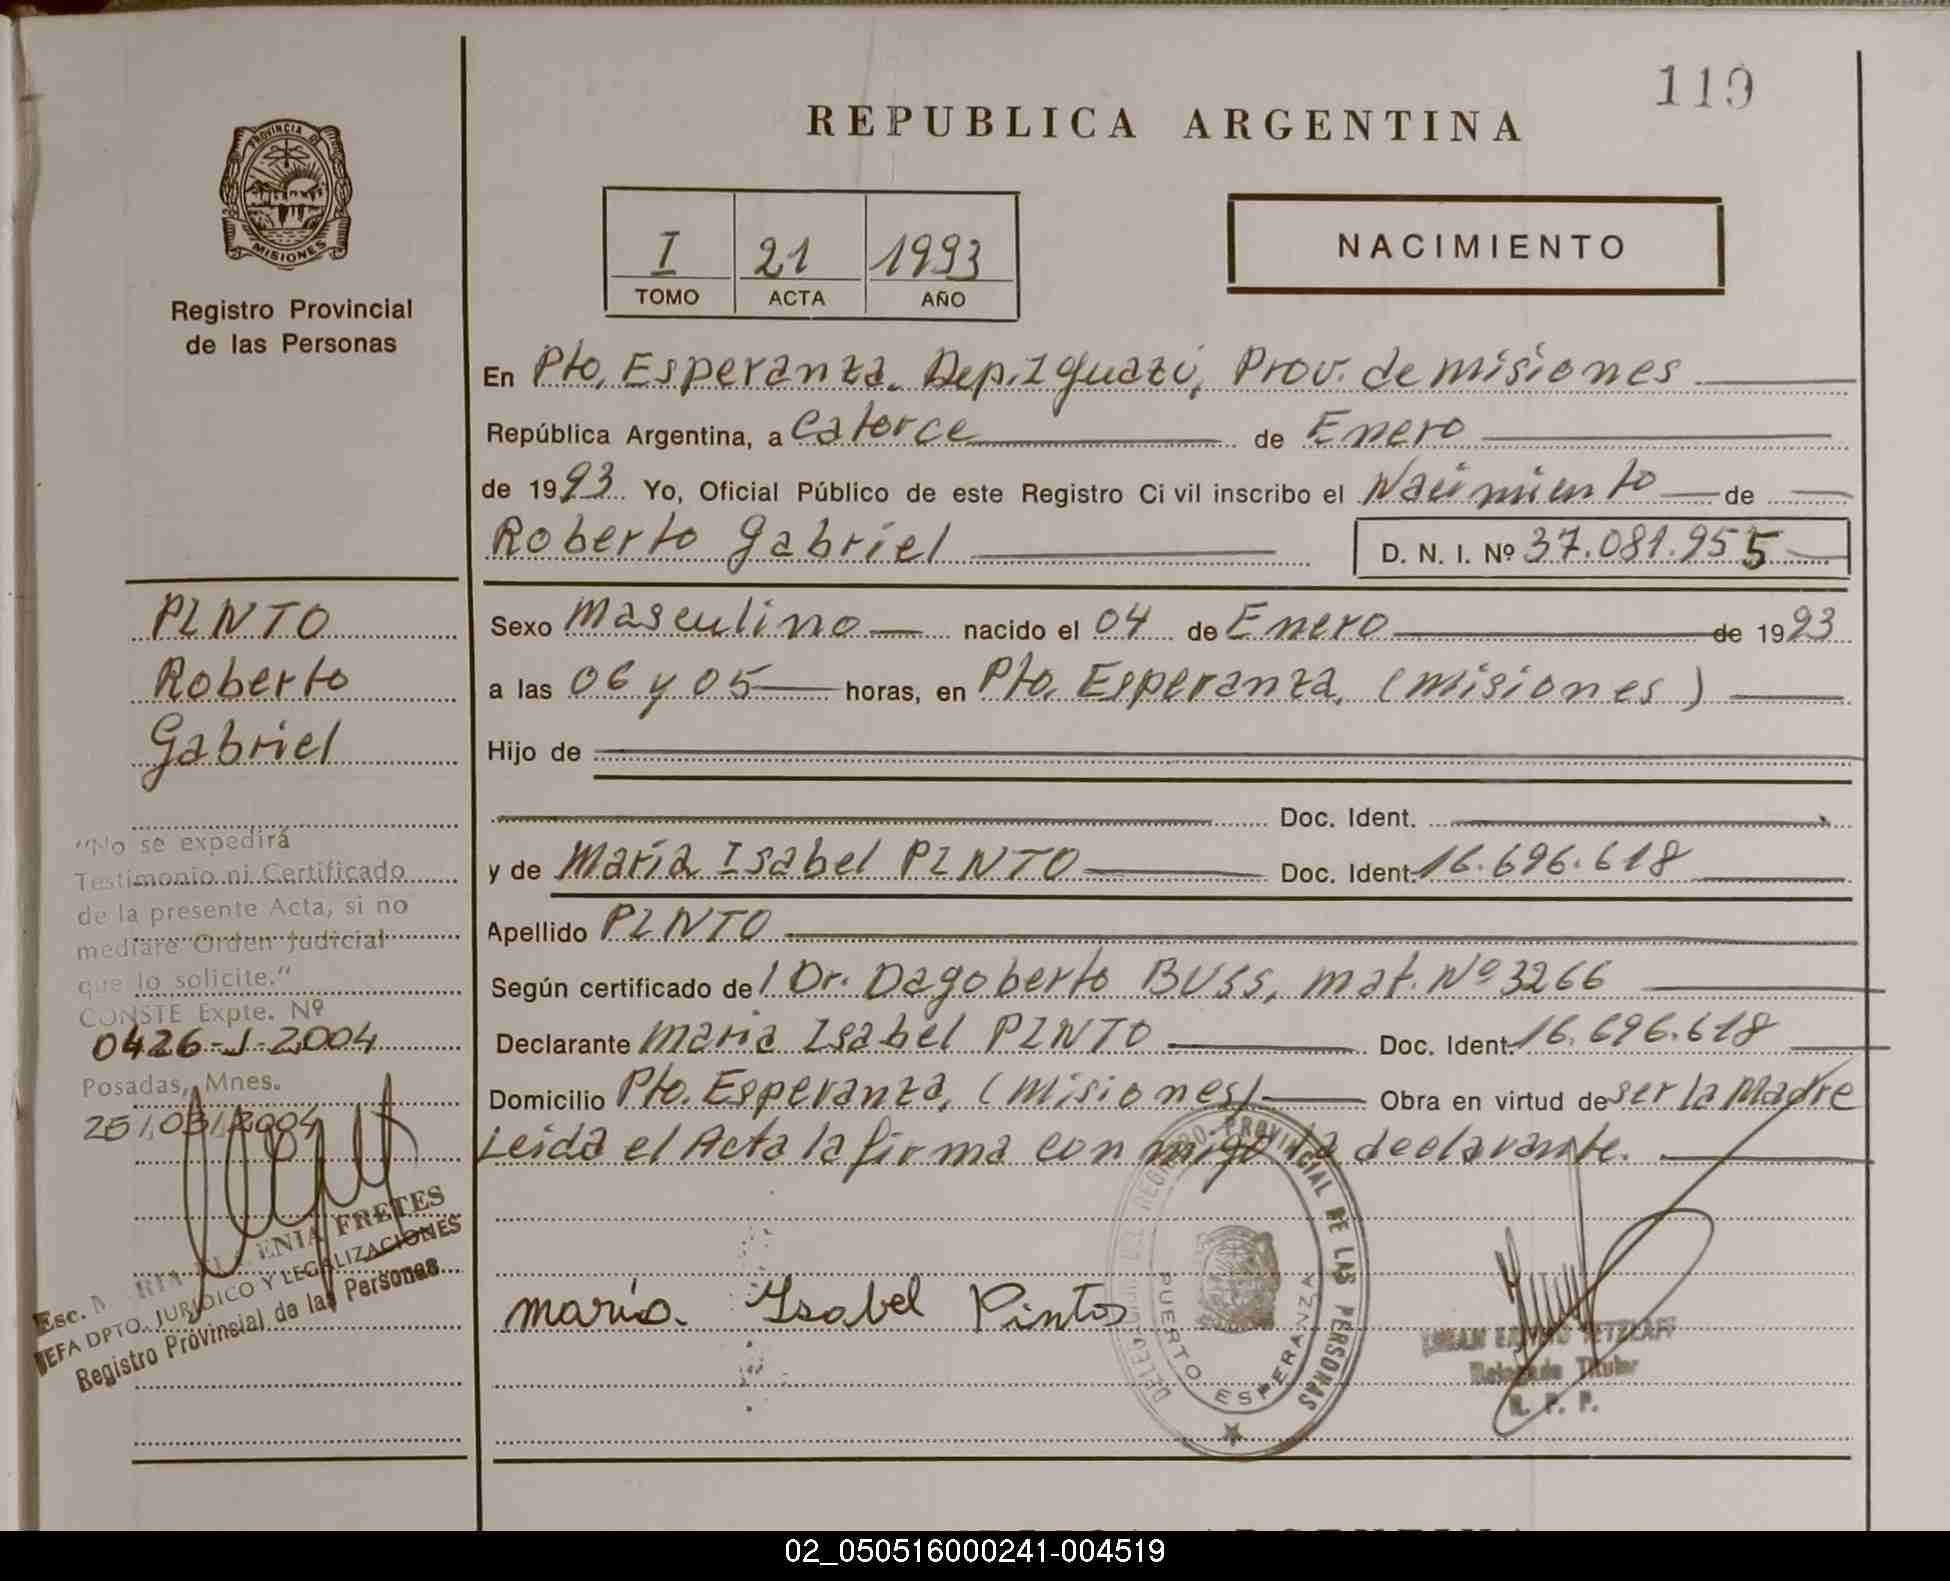 119
REPUBLICA ARGENTINA
PROVINCIA DE
MISIONES
Registro Provincial
de las Personas
I 21 1993
TOMO ACTA AÑO
NACIMIENTO
En Pto. Esperanza. Dep. Iguazú, Prov. de misiones
República Argentina, a catorce de Enero
de 1993 Yo, Oficial Público de este Registro Ci vil inscribo el Nacimiento de
Roberto Gabriel
D. N. I. Nº 37.081.955
PINTO
Roberto
Gabriel
Sexo Masculino nacido el 04 de Enero de 1993
a las 06 y 05 horas, en Pto. Esperanza, (misiones)
Hijo de
Doc. Ident.
y de María Isabel PINTO Doc. Ident. 16.696.618
Apellido PINTO
Según certificado de l Dr. Dagoberto BUSS, mat. Nº 3266
Declarante Maria Isabel PINTO Doc. Ident. 16.696.618
Domicilio Pto. Esperanza, (misiones) Obra en virtud de ser la Madre
Leida el Acta la firma con migo la declarante.
"No se expedirá
Testimonio ni Certificado
de la presente Acta, si no
mediare Orden Judicial
que lo solicite."
CONSTE Expte. Nº
0426-J-2004
Posadas, Mnes.
25/03/2004
Esc. FRETES
JEFA DPTO. JURIDICO Y LEGALIZACIONES
Registro Provincial de las Personas
maria. Isabel Pinto
REGISTRO PROVINCIAL DE LAS PERSONAS
PUERTO ESPERANZA
Delegado Titular
R. P. P.
02_050516000241-004519